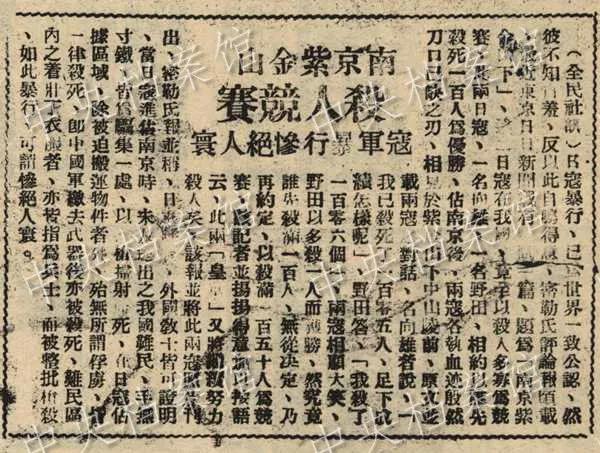 南京紫金山
殺人競賽
寇軍暴行慘絕人寰
(全民社訊)日寇暴行、已爲世界一致公認、然
彼不知羞、反以此自鳴得意、密勒氏評論報頃載
、最近東京日日新聞載有一篇、題爲南京紫
金山下、述二日寇在我國、竟至以殺人多寡爲競
賽、此兩日寇、一名向雄一名野田、相約以誰先
殺死一百人爲優勝、佔南京後、兩寇各執血迹殷然
刀口已缺之刃、相見於紫金山下中山陵前、原文並
載兩寇對話、名向雄者說、「
我已殺死了一百零五人、足下成
績怎樣呢」、野田答、「我殺了
一百零六個」、兩寇相顧大笑、
野田以多殺一人而獲勝、然究竟
誰先殺滿一百人、無從決定、乃
再約定、以殺滿一百五十人爲競
賽、該記者並揚揚得意加以按語
云、此兩「皇軍」又將繼續努力
殺人矣、該報並將此兩寇照片刊
出、密勒氏報並稱、日寇 外國教士皆可證明
、當日寇進佔南京時、未及逃出之我國難民、手無
寸鐵、皆爲驅集一處、以機槍掃射而死、在日寇佔
據區域、除被迫搬運物件者外、殆無所謂俘虜、
一律殺死、卽中國軍繳去武器後亦被殺死、難民區
內之着壯丁衣服者、亦被指爲兵士、而被整批槍殺
、如此暴行、可謂慘絕人寰。
中央档案馆